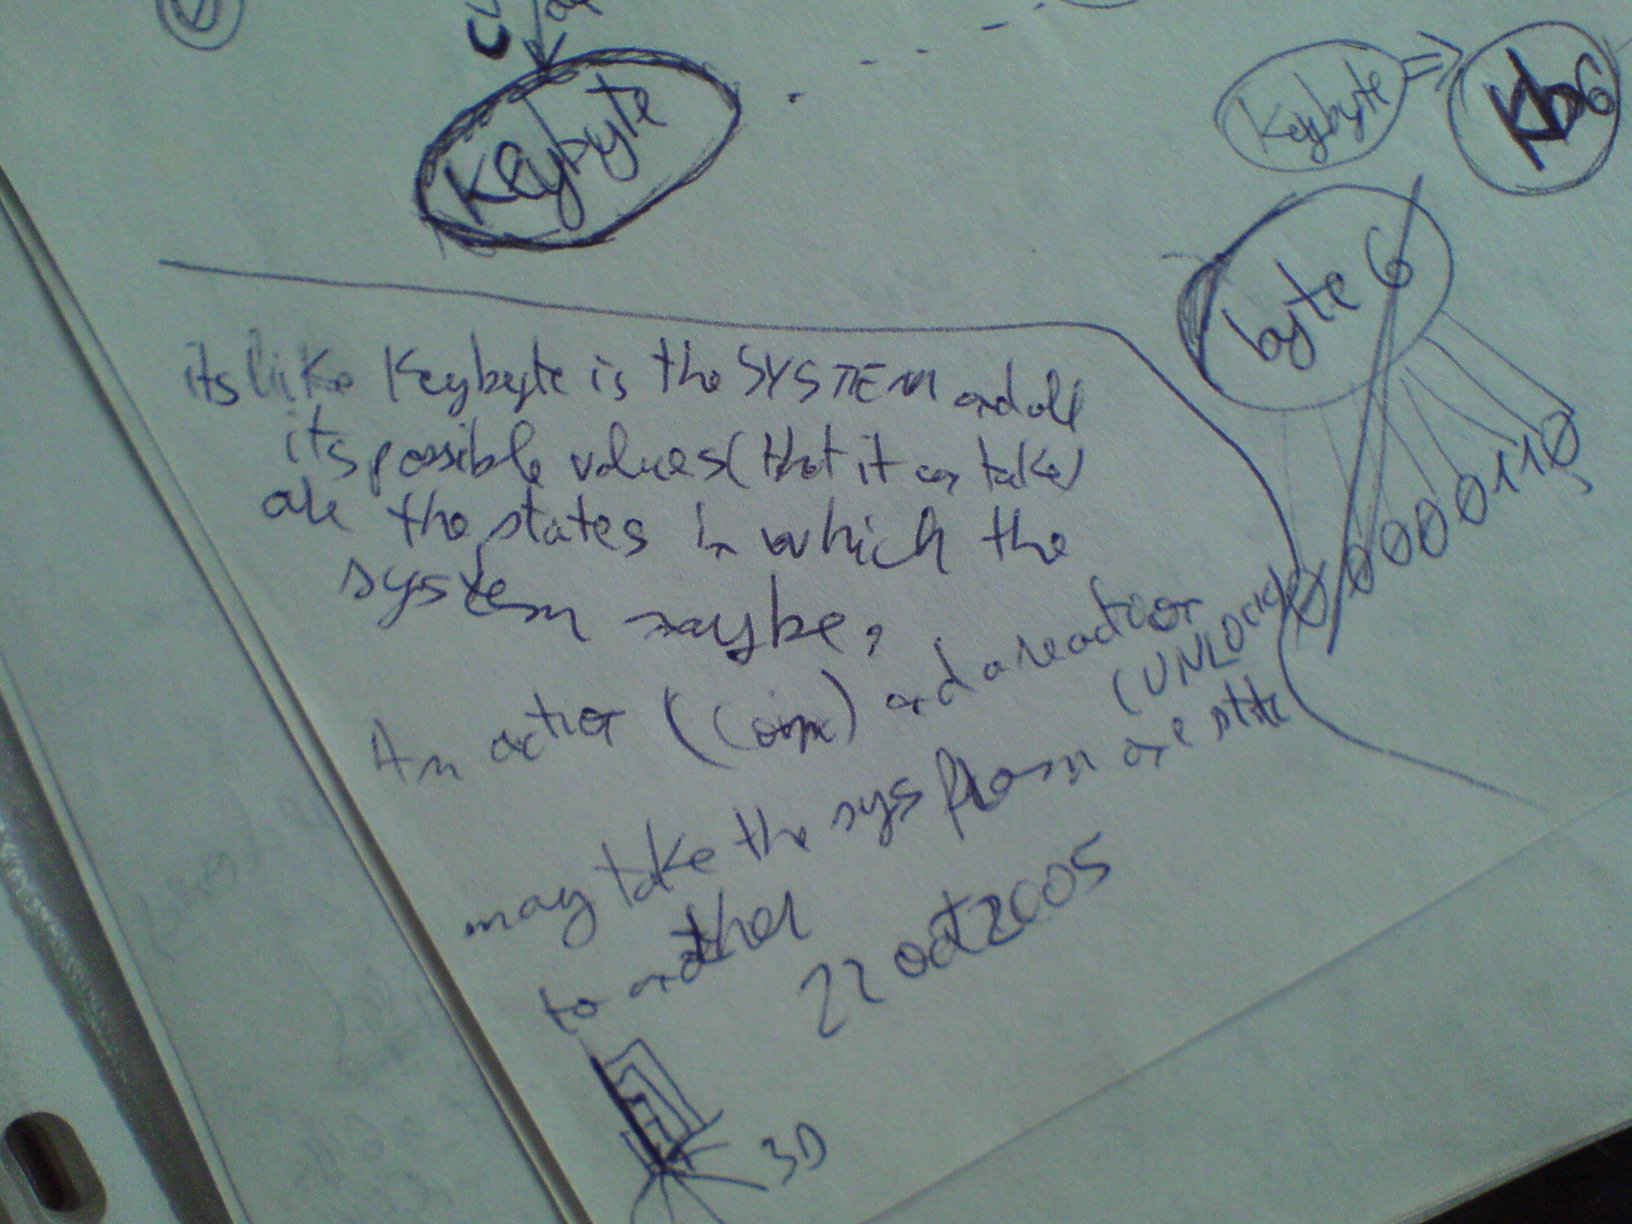 Keybyte
Keybyte
Kb6
byte 6
00000110
its like Keybyte is the SYSTEM and all
its possible values (that it can take)
are the states in which the
system maybe,
An action (Coin) and a reaction
(UNLOCK)
may take the sys from one state
to another
22 oct 2005
3D